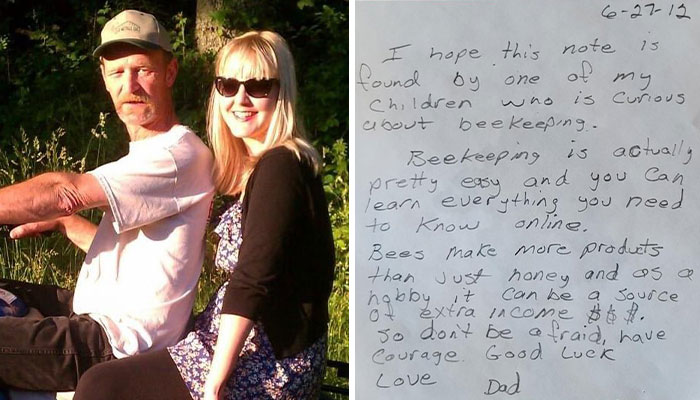 6-27-12
I hope this note is
found by one of my
children who is curious
about beekeeping.
Beekeeping is actually
pretty easy and you can
learn everything you need
to know online.
Bees make more products
than just honey and as a
hobby it can be a source
of extra income $$$.
So don't be afraid, have
courage. Good Luck
Love Dad